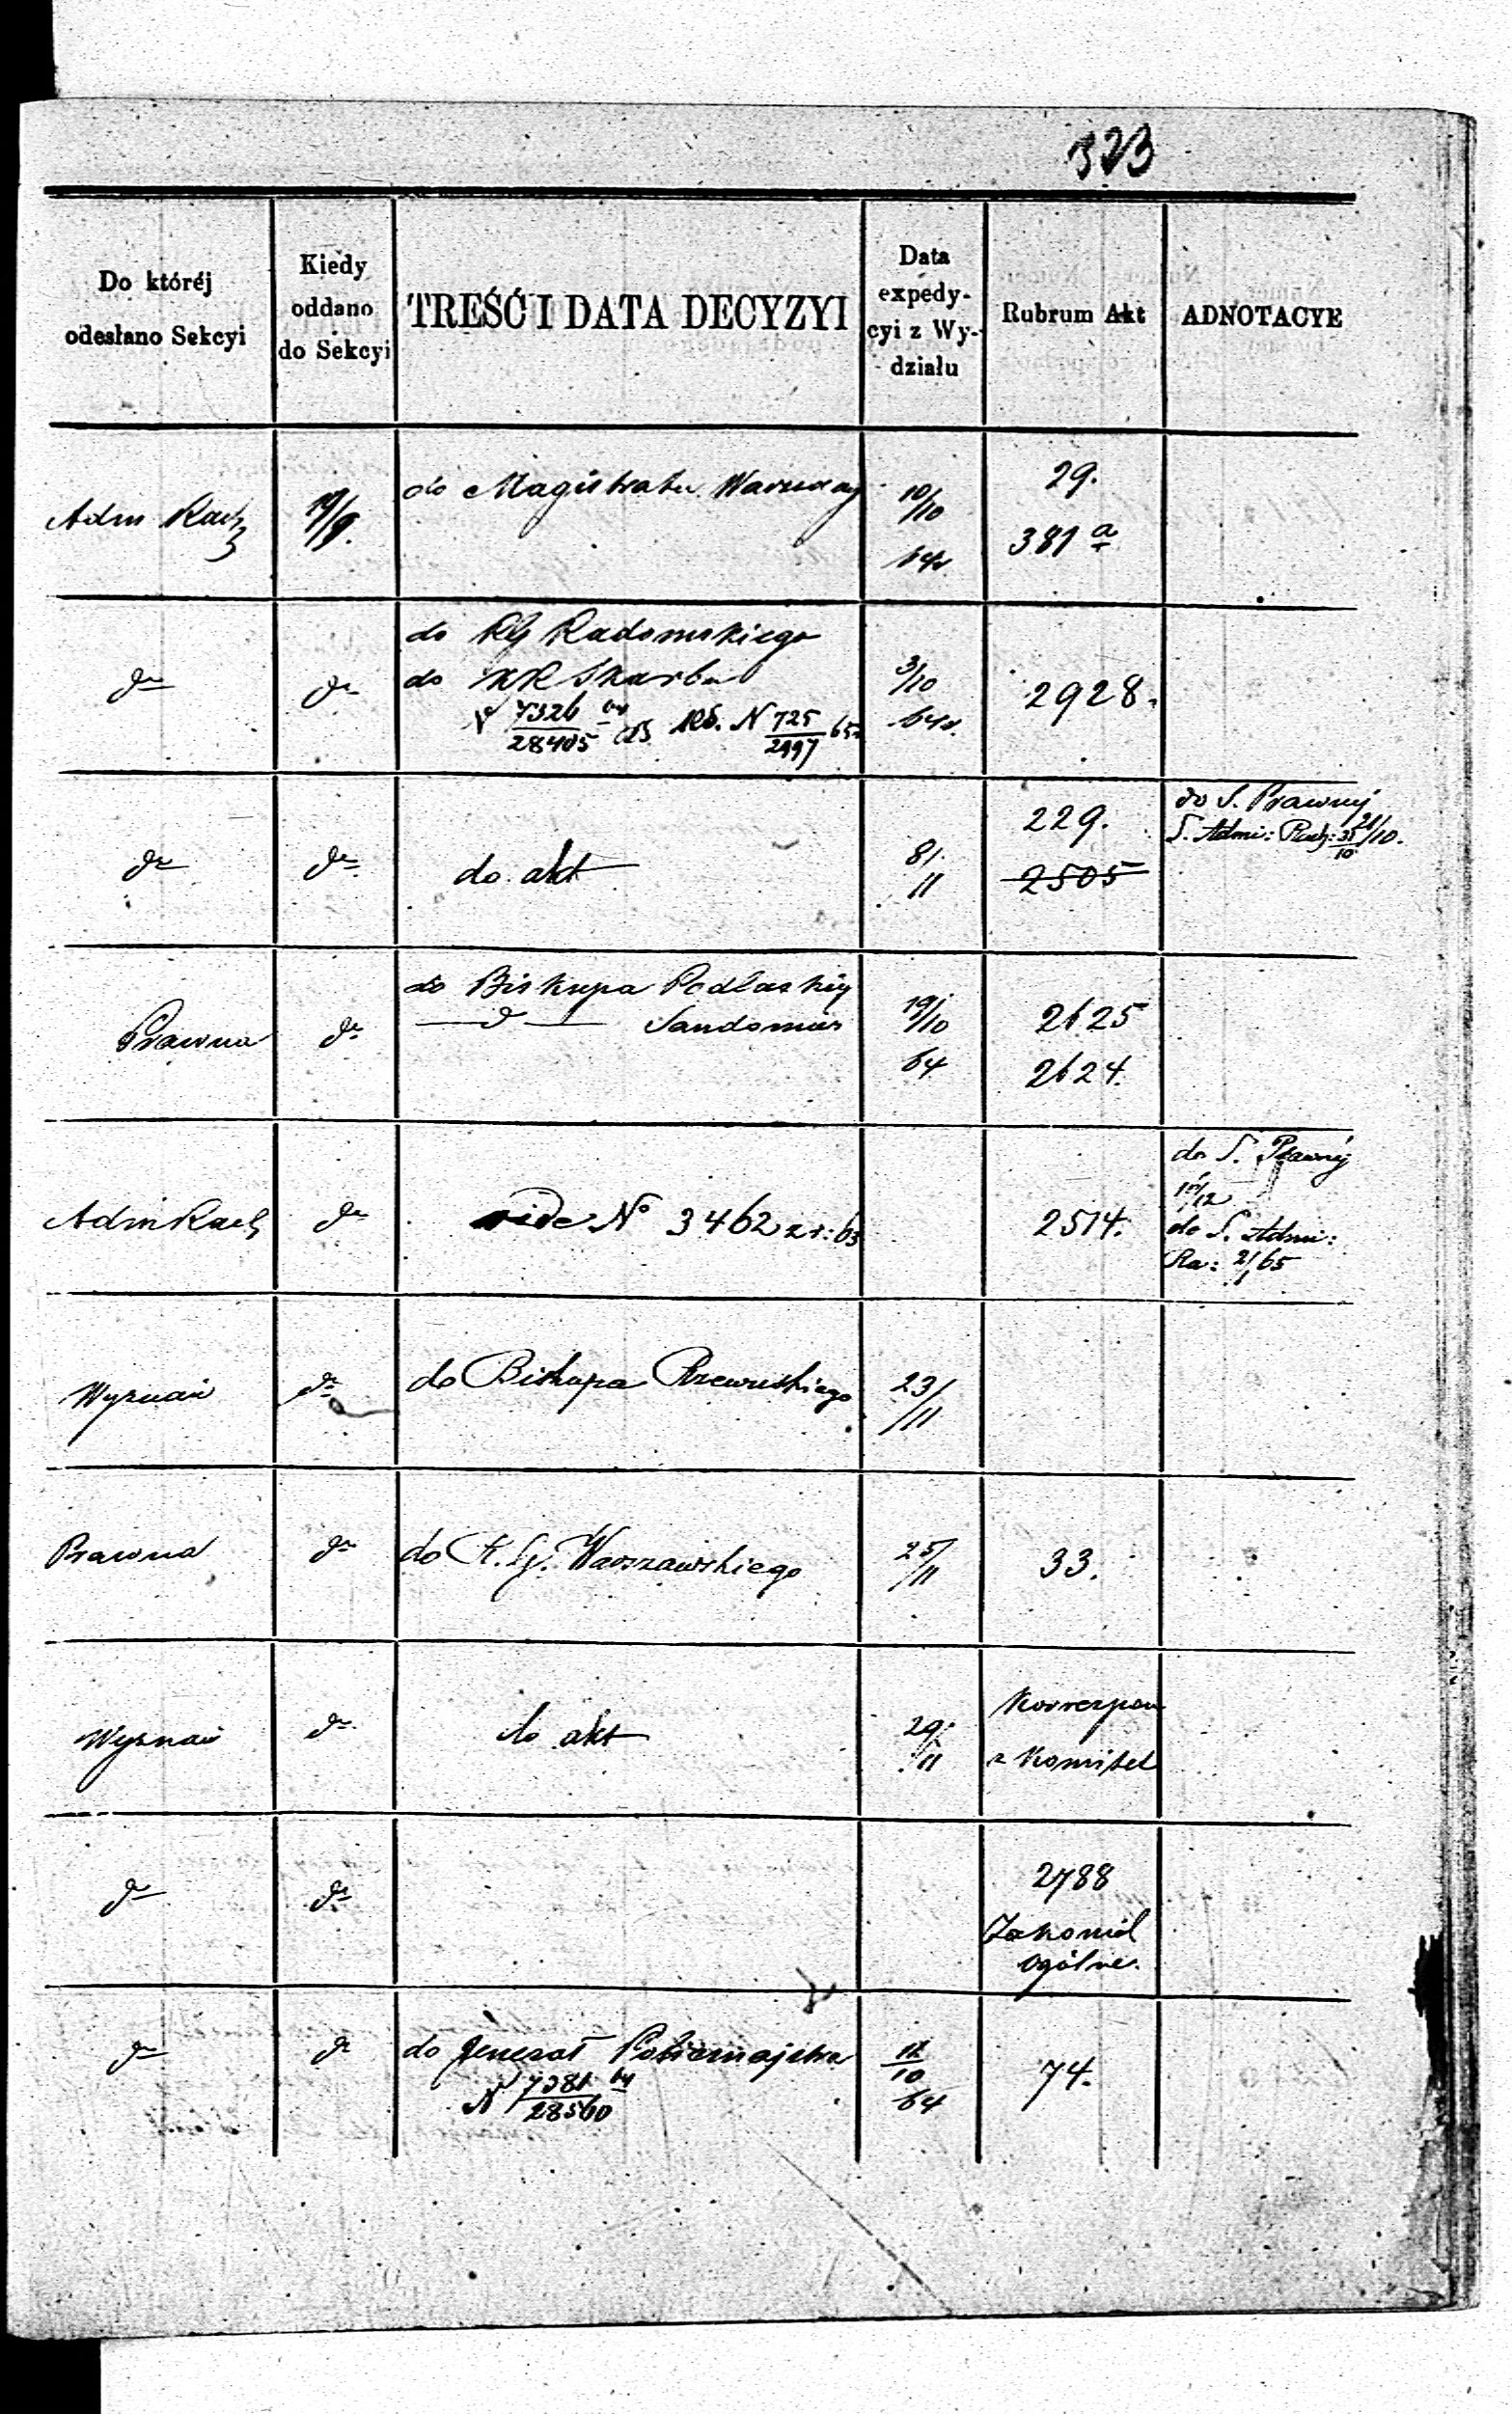 323
Do któréj
odesłano Sekcyi
Kiedy
oddano
do Sekcyi
TREŚĆ I DATA DECYZYI
Data
expedy-
cyi z Wy-
działu
Rubrum Akt
ADNOTACYE
Adm Rach
19/9.
do Magistratu Warszawy
10/10
64r.
29.
381 a
do
do
do RG Radomskiego
do KR Skarbu
N 7326/28405 N 725/2997 65r
3/10
64r.
2928.
do
do
do akt
8/11
229.
2505
do S. Prawnéj
S. Admi: Rach: /10.
Prawna
do
do Biskupa Podlaskiej
—d— Sandomier
19/10
64
2625
2624.
Adm Rach
do
vide No 3462 z r: 63
2514.
do S. Prawnéj
/12
do S. Admi:
Ra: 2/1 65
Wyznań
do
do Biskupa Rzewuskiego
23/11
Prawna
do
do R. G. Warszawskiego
25/11
33.
Wyznań
do
do akt
29/11
Korrespon
z Komitet
do
do
2788
Zakonid
ogólne.
do
do
do Jenerał Policmajstra
N 7381/28560 64
12/10
64
74.